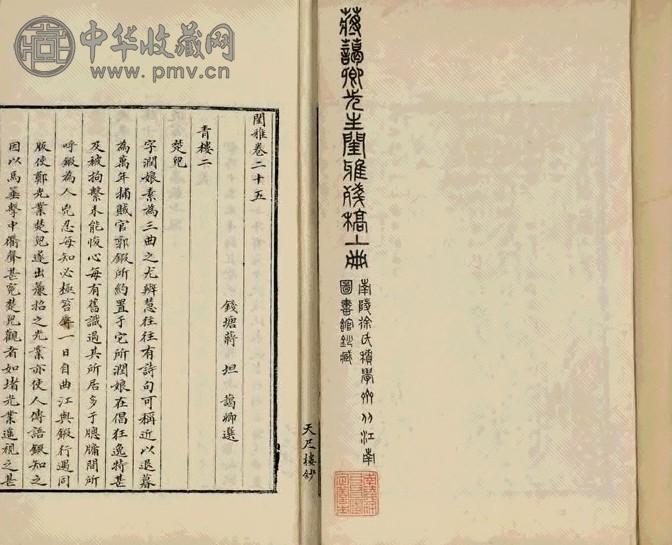 中华收藏网
www.pmv.cn
蔣藹卿先生閨雅殘稿一冊
南陵徐氏積學齋從江南
圖書館鈔藏
閨雅卷二十五
錢塘蔣 坦 藹卿選
青樓二
楚兒
字潤娘素為三曲之尤辨慧往往有詩句可稱近以退暮
為萬年捕賊官郭鍛所約置于它所潤娘在倡狂逸特甚
及被拘繫未能悛心每有舊識過其所居多于牕牖間所
呼鍛為人兇忍每知必極笞辱一日自曲江與鍛行遇同
版使鄭光業楚兒遂出簾招之光業亦使人傳語鍛知之
因以馬箠擊中衢聲甚冤楚兒觀者如堵光業遙視之甚
天尺樓鈔